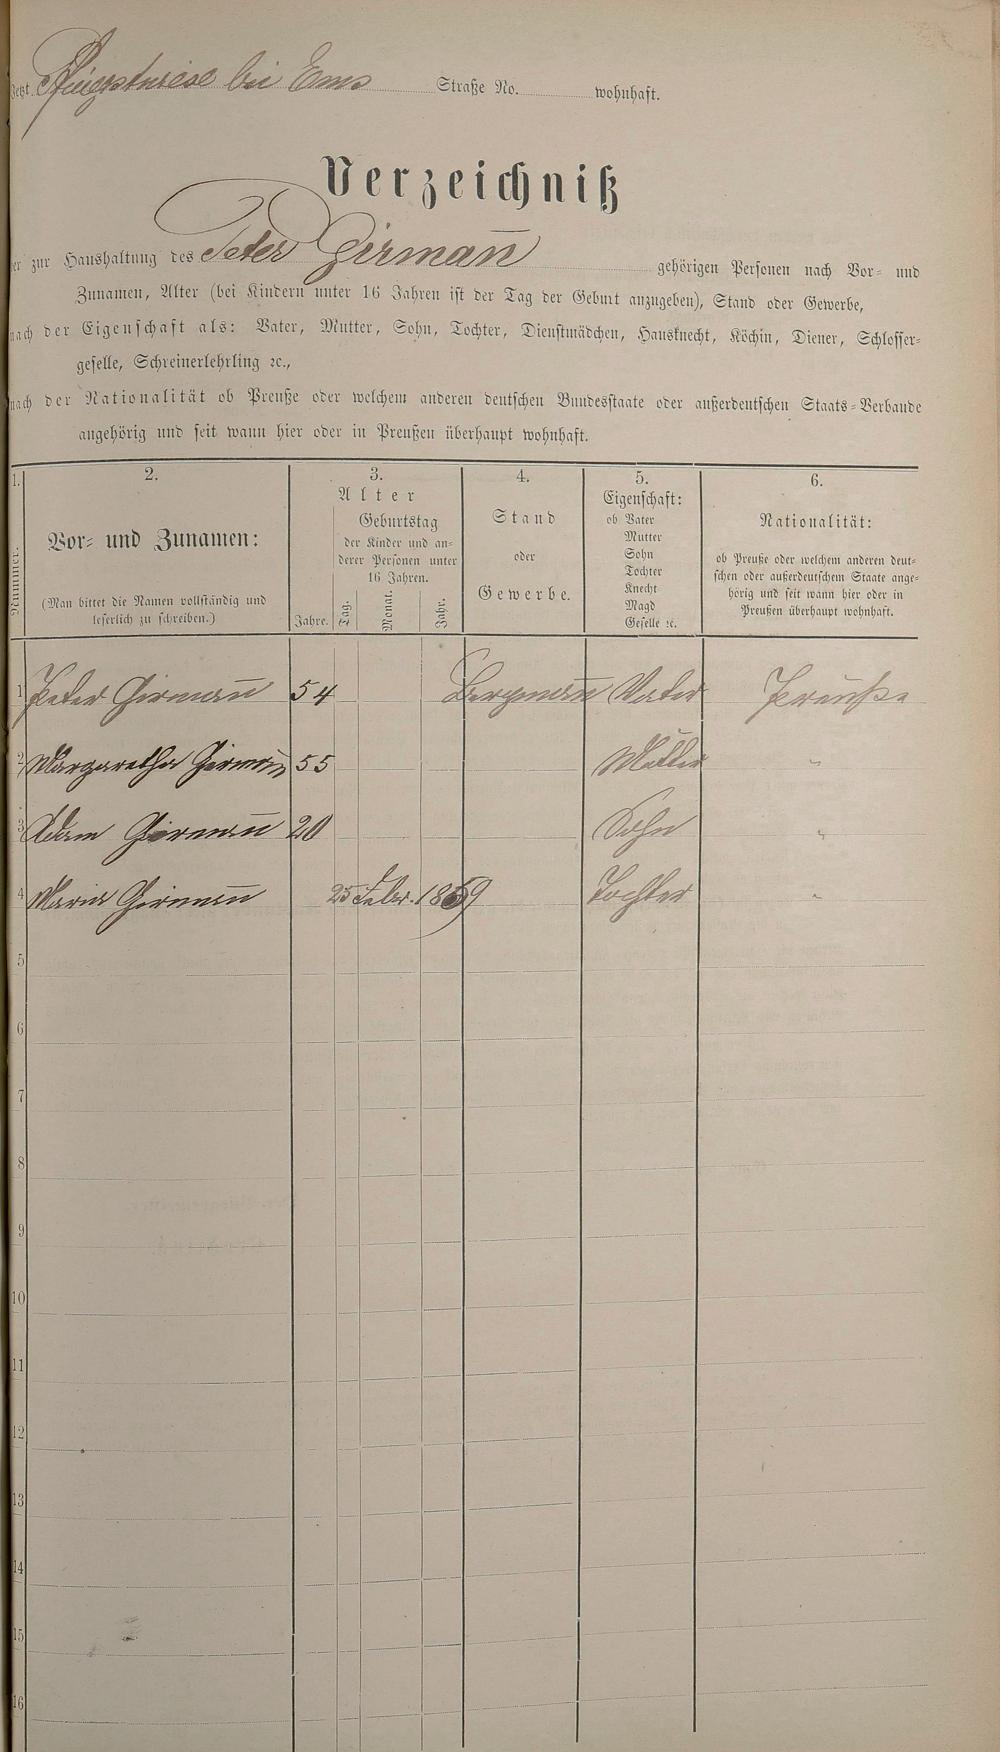 Jetzt Pfingstwiese bei Ems Straße No. wohnhaft.
Verzeichniß
der zur Haushaltung des Peter Girmañ gehörigen Personen nach Vor- und
Zunamen, Alter (bei Kindern unter 16 Jahren ist der Tag der Geburt anzugeben), Stand oder Gewerbe,
nach der Eigenschaft als: Vater, Mutter, Sohn, Tochter, Dienstmädchen, Hausknecht, Köchin, Diener, Schlosser-
geselle, Schreinerlehrling ꝛc.,
nach der Nationalität ob Preuße oder welchem anderen deutschen Bundesstaate oder außerdeutschen Staats-Verbande
angehörig und seit wann hier oder in Preußen überhaupt wohnhaft.
1. 2. 3. 4. 5. 6.
Nummer.
Vor- und Zunamen:
(Man bittet die Namen vollständig und
leserlich zu schreiben.)
Alter
Jahre.
Geburtstag
der Kinder und an-
derer Personen unter
16 Jahren.
Tag. Monat. Jahr.
Stand
oder
Gewerbe.
Eigenschaft:
ob Vater
Mutter
Sohn
Tochter
Knecht
Magd
Geselle ꝛc.
Nationalität:
ob Preuße oder welchem anderen deut-
schen oder außerdeutschem Staate ange-
hörig und seit wann hier oder in
Preußen überhaupt wohnhaft.
1 Peter Girmañ 54 Bergmañ Vater Preuße
2 Margaretha Girmañ 55 Mutter "
3 Adam Girmañ 20 Sohn "
4 Maria Girmañ 25 Febr. 1859 Tochter "
5
6
7
8
9
10
11
12
13
14
15
16